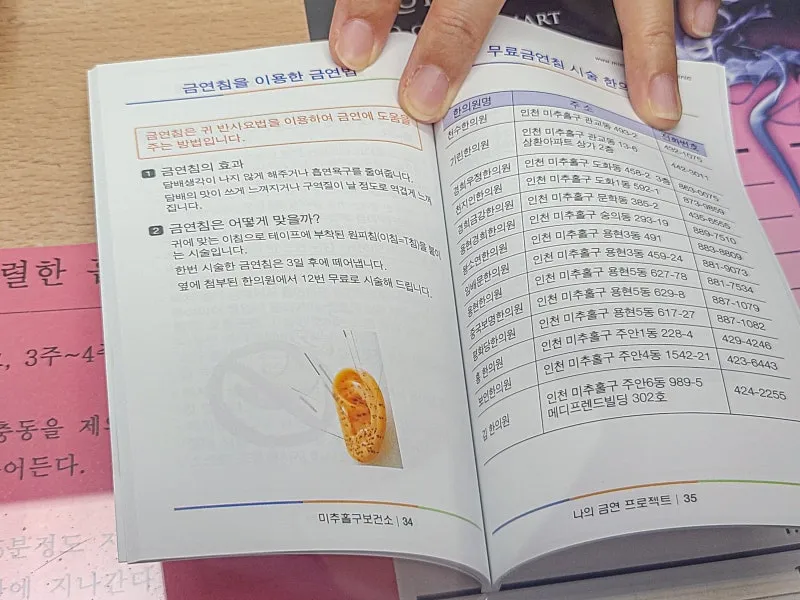 금연침을 이용한 금연법
금연침은 귀 반사요법을 이용하여 금연에 도움을
주는 방법입니다.
1 금연침의 효과
담배생각이 나지 않게 해주거나 흡연욕구를 줄여줍니다.
담배의 맛이 쓰게 느껴지거나 구역질이 날 정도로 역겹게 느껴
집니다.
2 금연침은 어떻게 맞을까?
귀에 맞는 이침으로 테이프에 부착된 원피침(이침=T침)을 붙이
는 시술입니다.
한번 시술한 금연침은 3일 후에 떼어냅니다.
옆에 첨부된 한의원에서 12번 무료로 시술해 드립니다.
미추홀구보건소 | 34
무료금연침 시술 한의
한의원명 주소 전화번호
천수한의원 인천 미추홀구 관교동 493-2 492-1075
기린한의원 인천 미추홀구 관교동 13-6
삼환아파트 상가 2층 442-3011
경희우정한의원 인천 미추홀구 도화동 458-2 3층 863-0075
천지인한의원 인천 미추홀구 도화1동 592-1 873-9859
경희금강한의원 인천 미추홀구 문학동 385-2 435-6555
인천 미추홀구 숭의동 293-19 889-7510
인천 미추홀구 용현3동 491 883-8809
인천 미추홀구 용현3동 459-24 881-9073
용현한의원 인천 미추홀구 용현5동 627-78 881-7534
중국보명한의원 인천 미추홀구 용현5동 629-8 887-1079
평화당한의원 인천 미추홀구 용현5동 617-27 887-1082
홍 한의원 인천 미추홀구 주안1동 228-4 429-4246
보인한의원 인천 미추홀구 주안4동 1542-21 423-6443
김 한의원 인천 미추홀구 주안6동 989-5
메디프렌드빌딩 302호 424-2255
나의 금연 프로젝트 | 35
렬한
3주~4
충동을
어든다.
5분정도
지나간다